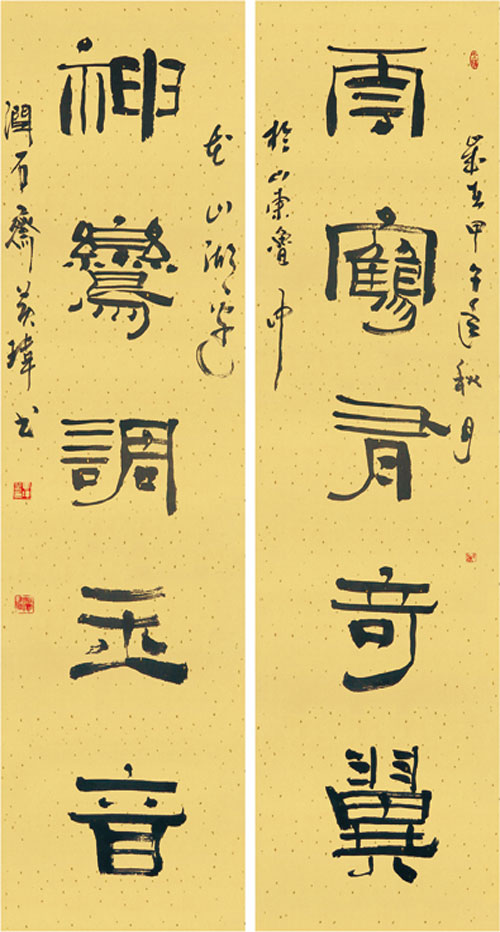 歲在甲午秋月
雲鶴有奇翼
於山東魯中
山湖邊
神鸞調玉音
潤石齋瑋书